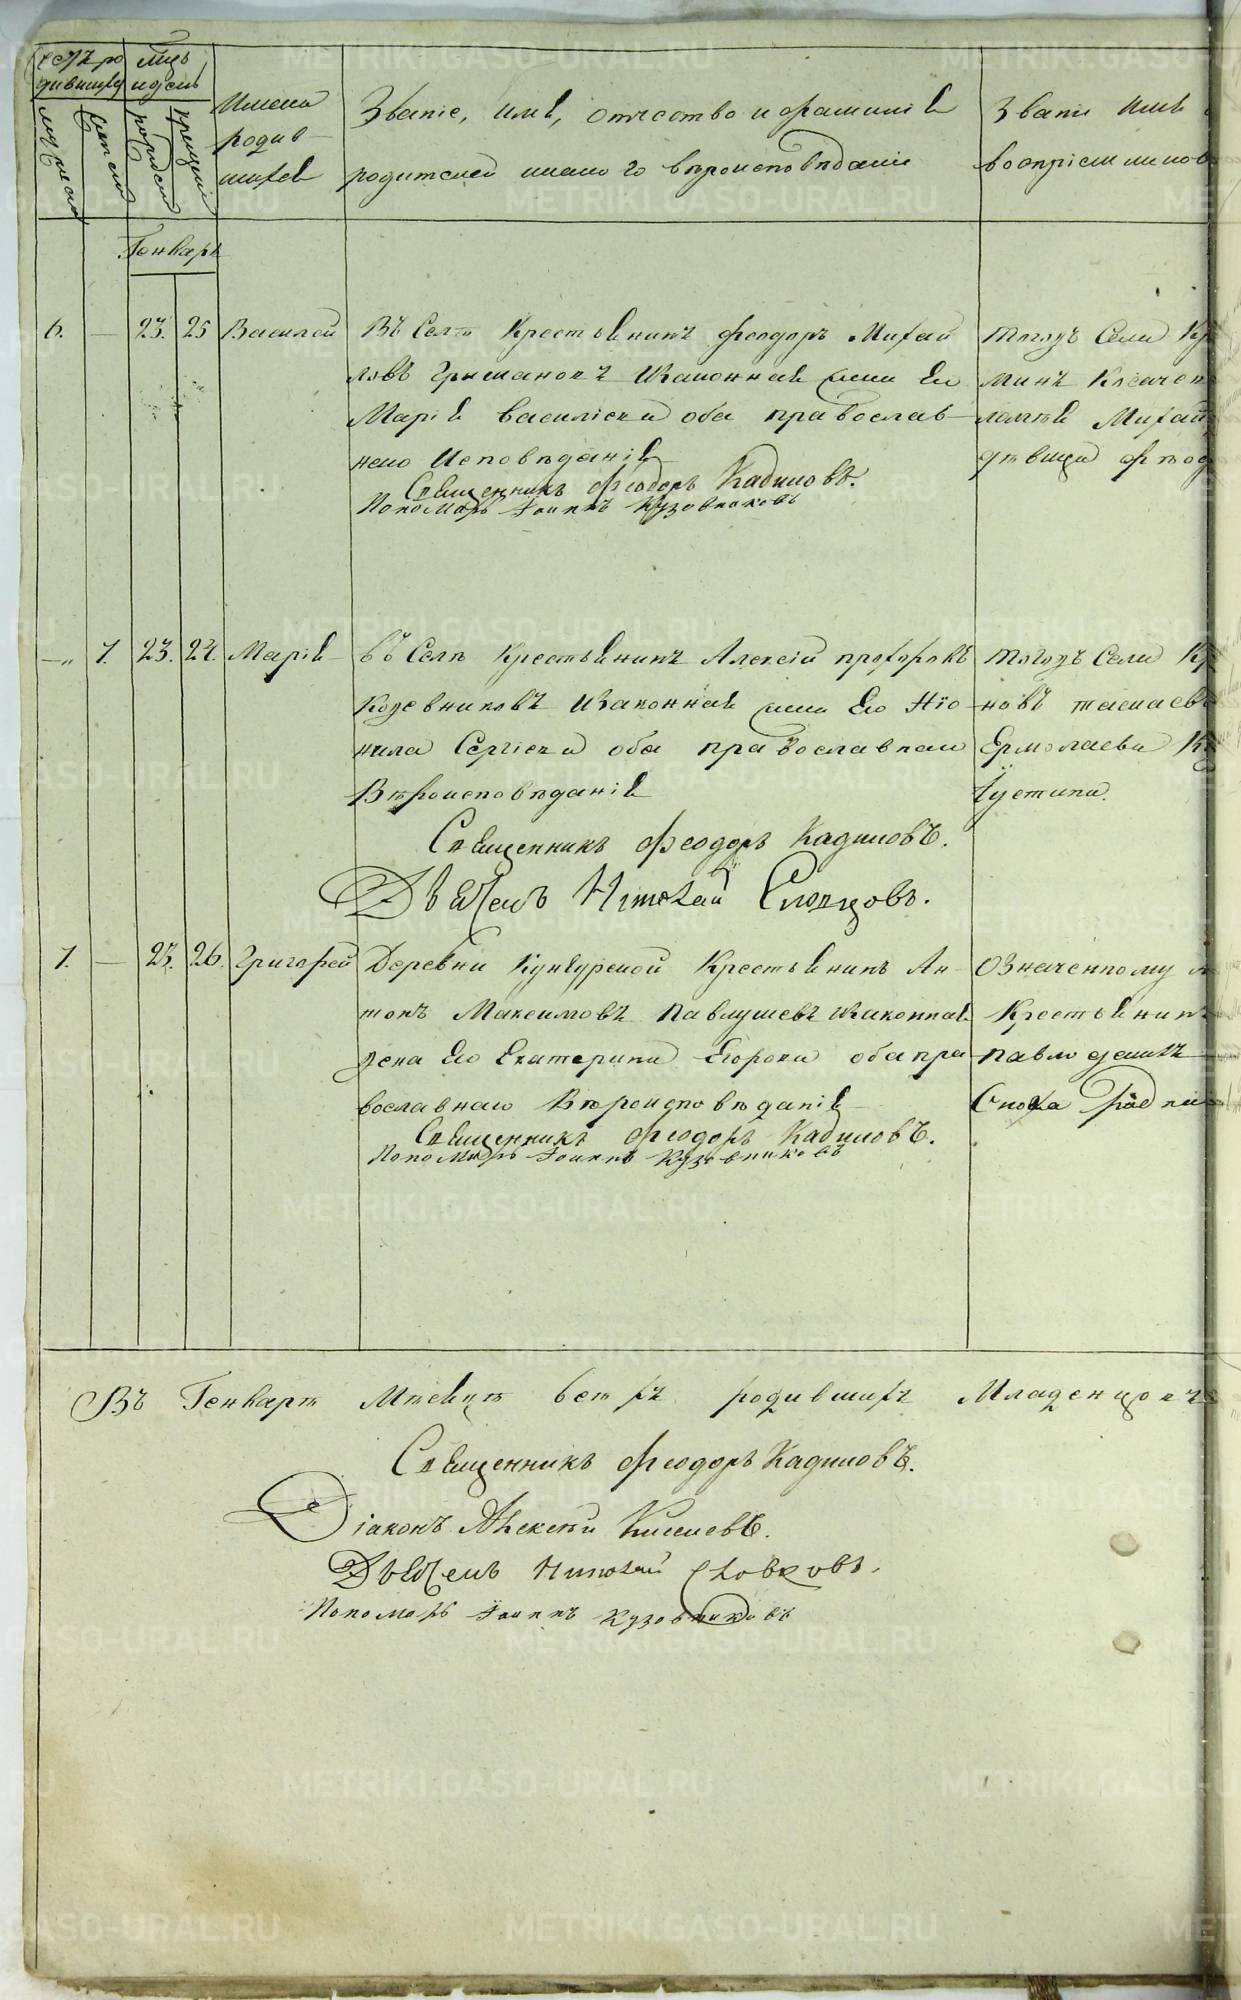 счетъ ро
дившихся
мужеска
женска
мѣць
и день
рожденія
крещенія
Имена
родив
шихся
Званіе, имя, отчество и фамилія
родителей какого вѣроисповѣданія
Званіе имя
воспріемников
Генварь
6. — 23. 25 Василей
Въ Селѣ Крестьянинъ Феодоръ Михай
ловъ Гришановъ Изаконная жена Ею
Марія Василіева оба православ
наго Исповѣданія
Священникъ Феодоръ Кадиловъ.
Пономарь Іоаннъ Кузовниковъ
Тогожъ Села Кр
Михай
дѣвица Феод
—„ 7. 23. 24. Марія
въ Селѣ Крестьянинъ Алексій Прохоровъ
Кожевниковъ Изаконная жена Ево Нео
нила Сергіева оба православнаго
Вѣроисповѣданія
Священникъ Феодоръ Кадиловъ.
Дьячекъ Николай Словцовъ.
Тогожъ Села Кр
Ермолаева
Іустина.
7. — 23. 26. Григорей
Деревни Кункурской Крестьянинъ Ан
тонъ Максимовъ Павлушевъ Изаконная
жена Ево Екатерина оба пра
вославнаго Вѣроисповѣданія
Священникъ Феодоръ Кадиловъ.
Пономарь Іоаннъ Кузовниковъ
Означенному
Крестьянинъ
Сноха Родіи
Въ Генварѣ Мѣсяцѣ всѣхъ родившихъ Младенцовъ
Священникъ Феодоръ Кадиловъ.
Діаконъ Алексѣй Киселевъ.
Дьячекъ Николай Словцовъ.
Пономарь Іоаннъ Кузовниковъ
METRIKI.GASO-URAL.RU